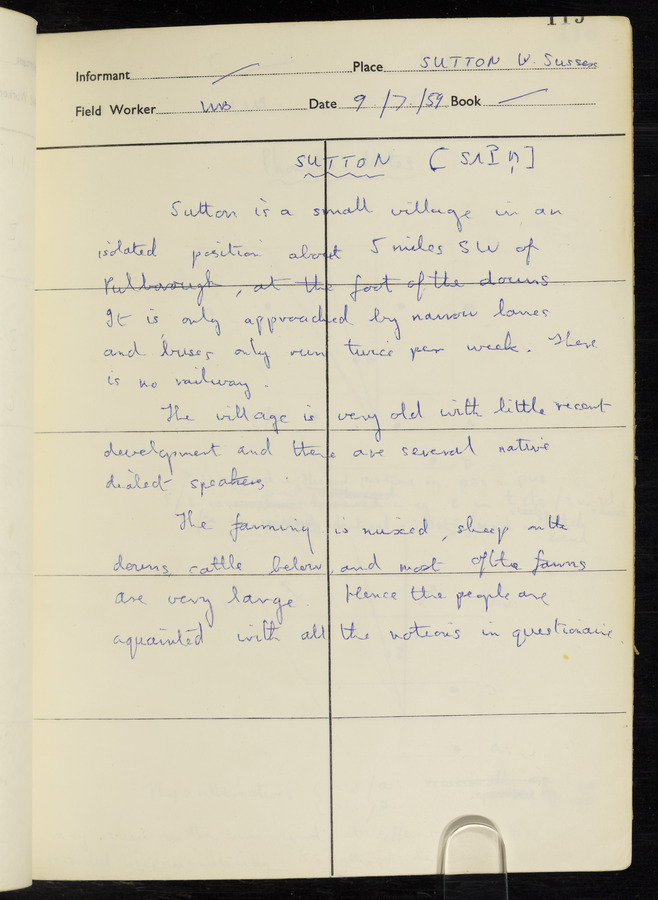 Informant Place SUTTON W. Sussex
Field Worker Date 9/7/59 Book
SUTTON
Sutton is a small village in an
isolated position about 5 miles SW of
Pulborough, at the foot of the downs
It is only approached by narrow lanes
and buses only run twice per week. There
is no railway.
The village is very old with little recent
development and there are several native
dialect speakers.
The farming is mixed, sheep on the
downs, cattle below, and most of the farms
are very large. Hence the people are
aquainted with all the notions in questionaire.